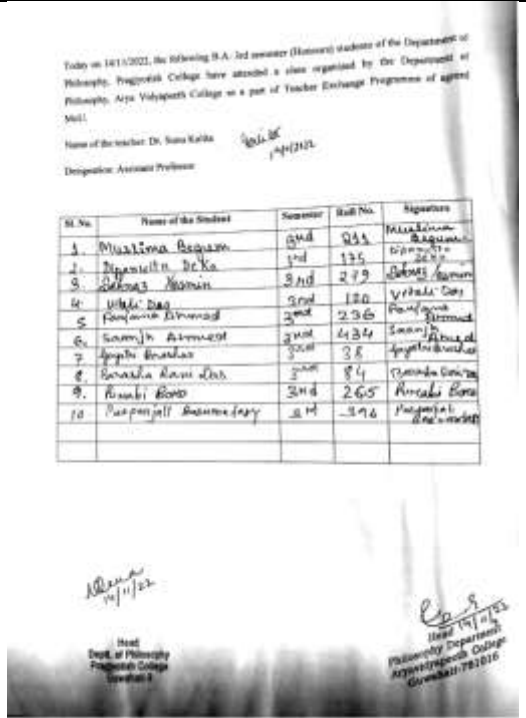 Today on 14/11/2022, the following B.A. 3rd semester (Honours) students of the Department of
Philosophy, Pragjyotish College have attended a class organized by the Department of
Philosophy, Arya Vidyapeeth College as a part of Teacher Exchange Programme of agreed
MoU.
Name of the teacher: Dr. Sunu Kalita
14/11/2022
Designation: Assistant Professor
Sl. No. Name of the Student Semester Roll No. Signature
1. Muslima Begum 3rd 211 Muslima Begum
2. Dipanwita Deka 3rd 175 Dipanwita Deka
3. Yasmin 3rd 279 Yasmin
4. Vitali Das 3rd 120 Vitali Das
5 Ahmed 3rd 236 Ahmed
6. Ahmed 3rd 434 Ahmed
7 38
8. Barasha Rani Das 3rd 84
9. Boro 3rd 265 Boro
10 Basumatary 3rd 396
14/11/22
Head
Deptt. of Philosophy
Pragjyotish College
Guwahati-9
14/11/22
Head
Philosophy Department
Aryavidyapeeth College
Guwahati-781016